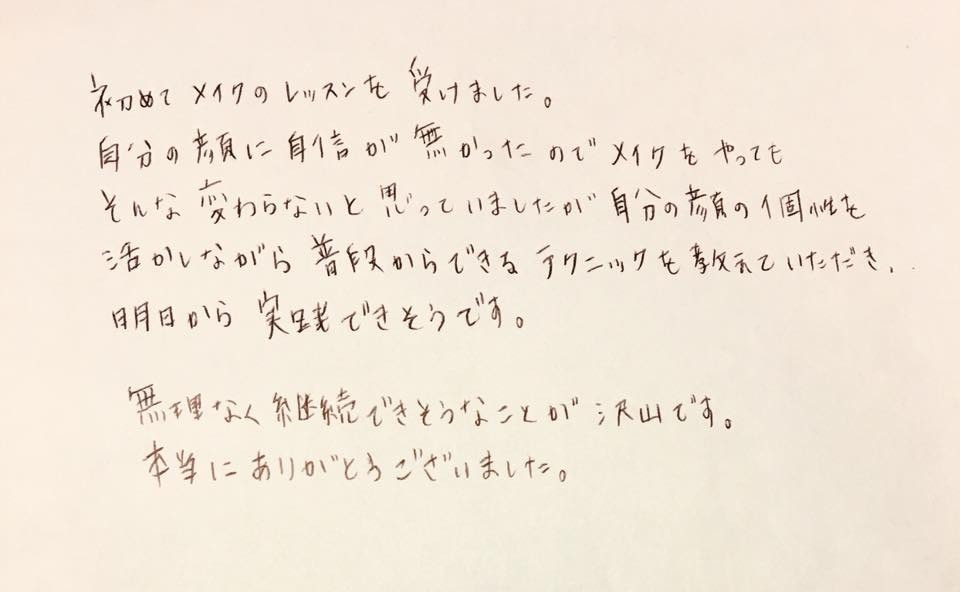 初めてメイクのレッスンを受けました。
自分の顔に自信が無かったのでメイクをやっても
そんな変わらないと思っていましたが自分の顔の個性を
活かしながら普段からできるテクニックを教えていただき、
明日から実践できそうです。
無理なく継続できそうなことが沢山です。
本当にありがとうございました。